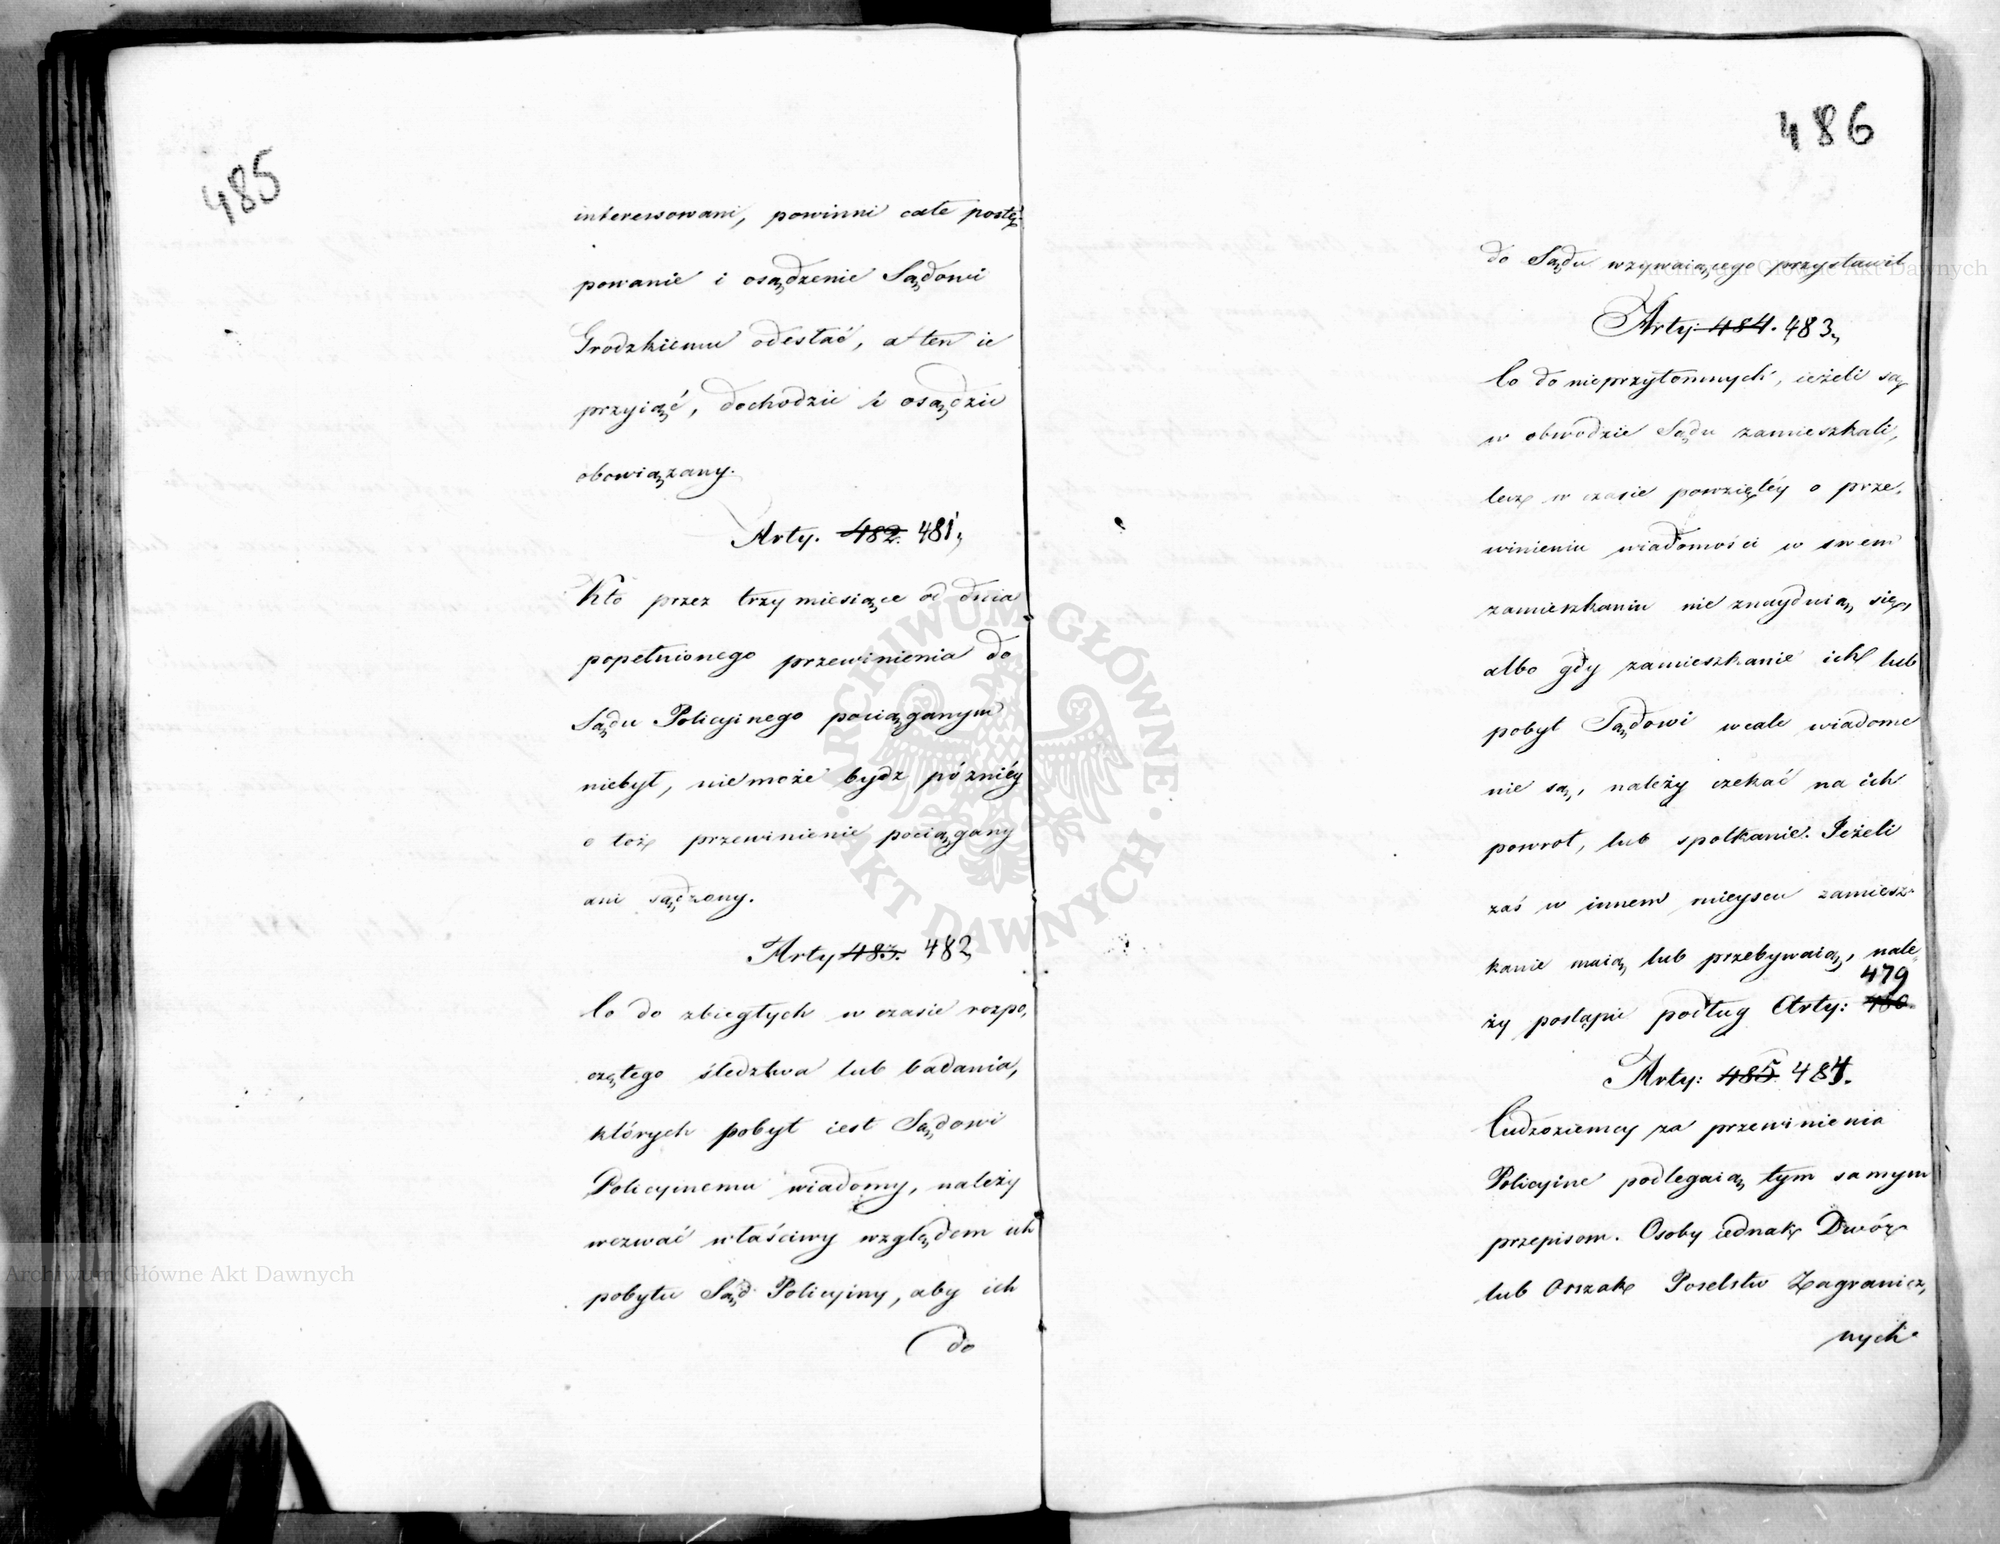 485
interessowani, powinni całe postę-
powanie i osądzenie Sądowi
Grodzkiemu odesłać, a ten ie
przyiąć, dochodzić i osądzić
obowiązany.
Arty. 482. 481.
Kto przez trzy miesiące od dnia
popełnionego przewinienia do
Sądu Policyinego pociąganym
niebył, nie może bydz późniéy
o toż przewinienie pociągany
ani sądzony.
Arty 483. 482
Co do zbiegłych w czasie rozpo,
czętego śledztwa lub badania,
których pobyt iest Sądowi
Policyinemu wiadomy, należy
wezwać właściwy względem ich
pobytu Sąd Policyiny, aby ich
do
486
do Sądu wzywaiącego przystawił
Arty. 484. 483.
Co do nieprzytomnych, ieżeli są
w obwodzie Sądu zamieszkali,
lecz w czasie powziętéy o prze,
winieniu wiadomości w swem
zamieszkaniu nie znayduią się,
albo gdy zamieszkanie ich lub
pobyt Sądowi wcale wiadome
nie są, należy czekać na ich
powrot, lub spotkanie. Jeżeli
zaś w innem mieyscu zamiesz-
kanie maią lub przebywaią, nale-
479
ży postąpić podług Arty: 480.
Arty: 485 484.
Cudzoziemcy za przewinienia
Policyine podlegaią tym samym
przepisom. Osoby iednak Dwór
lub Orszak Poselstw Zagranicz,
nych
ARCHIWUM GŁÓWNE AKT DAWNYCH
Archiwum Główne Akt Dawnych
Archiwum Główne Akt Dawnych